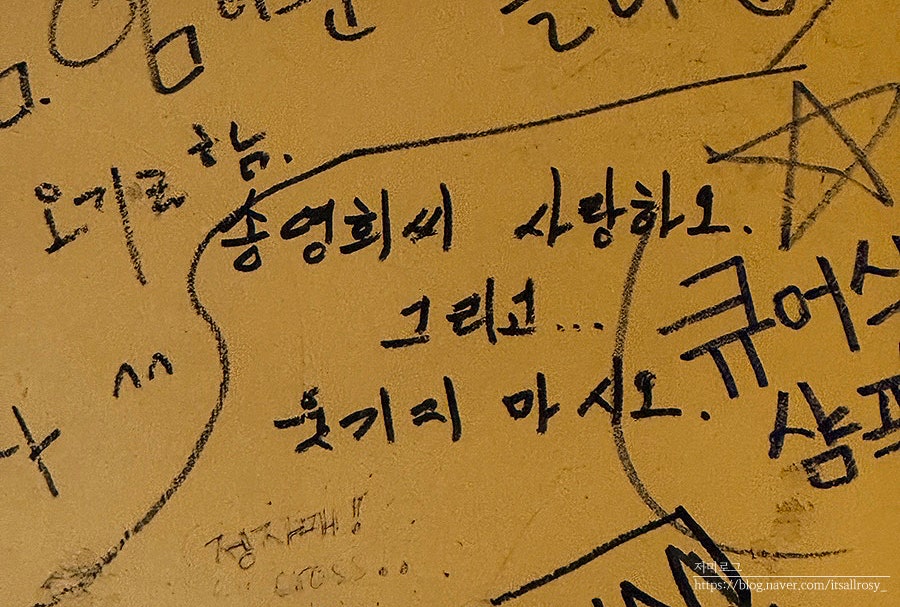 오기로 함.
송영희씨 사랑하오.
그리고...
웃기지 마시오.
큐어
샴푸
정자패!!
cross..
저미로그
https://blog.naver.com/itsallrosy_